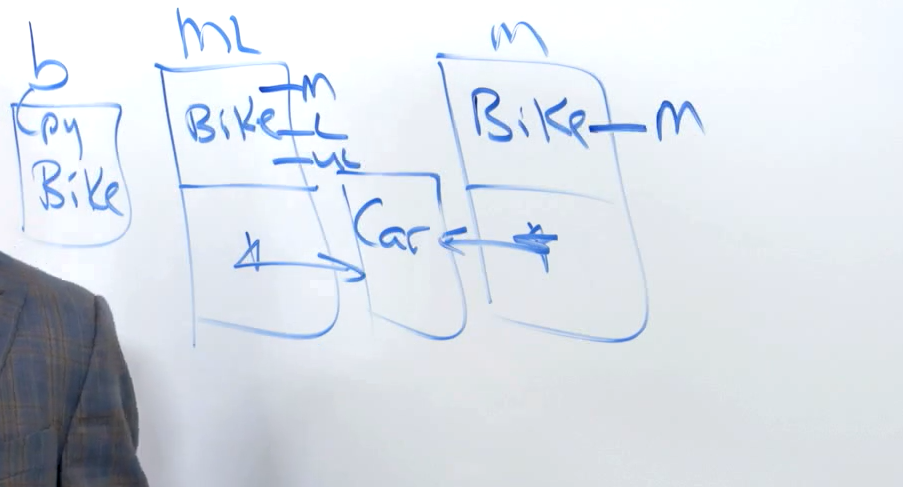 b
Cpy
Bike
ML
Bike
M
L
UL
*
Car
M
Bike
M
*